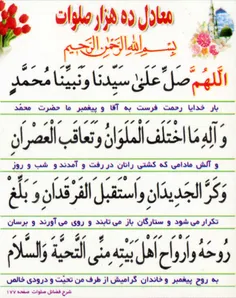 معادل ده هزار صلوات
بِسْمِ اللهِ الرَّحْمنِ الرَّحيمِ
اَللّهُمَّ صَلِّ عَلىٰ سَيِّدِنا وَ نَبِيِّنا مُحَمَّدٍ
بار خدایا رحمت فرست به آقا و پیغمبر ما حضرت محمّد
وَ آلِهِ مَا اخْتَلَفَ الْمَلَوانِ وَ تَعاقَبَ الْعَصْرانِ
و آلش مادامی که کشتی رانان در رفت و آمدند و شب و روز
وَ كَرَّ الْجَديدانِ وَ اسْتَقْبَلَ الْفَرْقَدانِ وَ بَلِّغْ
تکرار می شود و ستارگان باز می تابند و روی می آورند و برسان
رُوحَهُ وَ اَرْواحَ اَهْلِ بَيْتِهِ مِنِّى التَّحِيَّةَ وَ السَّلامَ
به روح پیغمبر و خاندان گرامیش از طرف من تحیّت و درودی خالص
شرح فضائل صلوات صفحه ۱۷۷